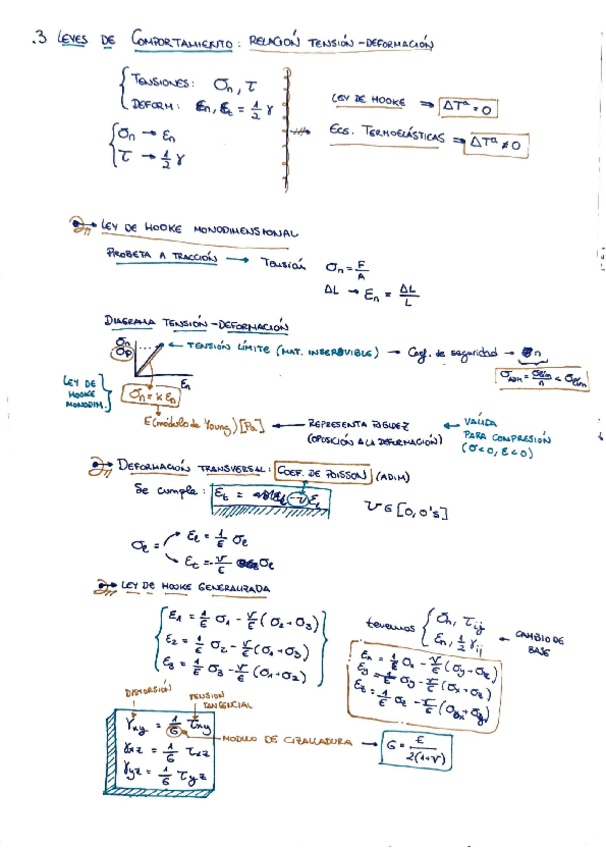 .3 LEYES DE COMPORTAMIENTO: RELACIÓN TENSIÓN-DEFORMACIÓN
TENSIONES: σn, τ
DEFORM: εn, εt = 1/2 γ
σn → εn
τ → 1/2 γ
LEY DE HOOKE ⇒ ΔTª = 0
ECS. TERMOELÁSTICAS ⇒ ΔTª ≠ 0
LEY DE HOOKE MONODIMENSIONAL
PROBETA A TRACCIÓN → Tensión σn = F/A
ΔL → εn = ΔL/L
DIAGRAMA TENSIÓN-DEFORMACIÓN
σn
σp
← TENSIÓN LÍMITE (MAT. INSERVIBLE) → Coef. de seguridad → n
σadm = σlim/n < σlim
εn
LEY DE HOOKE MONODIM.
σn = k εn
E (módulo de Young) [Pa] ← REPRESENTA RIGIDEZ (OPOSICIÓN A LA DEFORMACIÓN)
← VÁLIDA PARA COMPRESIÓN (σ<0, ε<0)
DEFORMACIÓN TRANSVERSAL: COEF. DE POISSON (ADIM)
Se cumple: εt = -ν εl
ν ∈ [0, 0's]
σl =
εl = 1/E σl
εt = -ν/E σl
LEY DE HOOKE GENERALIZADA
ε1 = 1/E σ1 - ν/E (σ2+σ3)
ε2 = 1/E σ2 - ν/E (σ1+σ3)
ε3 = 1/E σ3 - ν/E (σ1+σ2)
tenemos
σn, τij
εn, 1/2 γij
← CAMBIO DE BASE
εx = 1/E σx - ν/E (σy+σz)
εy = 1/E σy - ν/E (σx+σz)
εz = 1/E σz - ν/E (σx+σy)
DISTORSIÓN
TENSION TANGENCIAL
γxy = 1/G τxy
γxz = 1/G τxz
γyz = 1/G τyz
MODULO DE CIZALLADURA → G = E/2(1+ν)